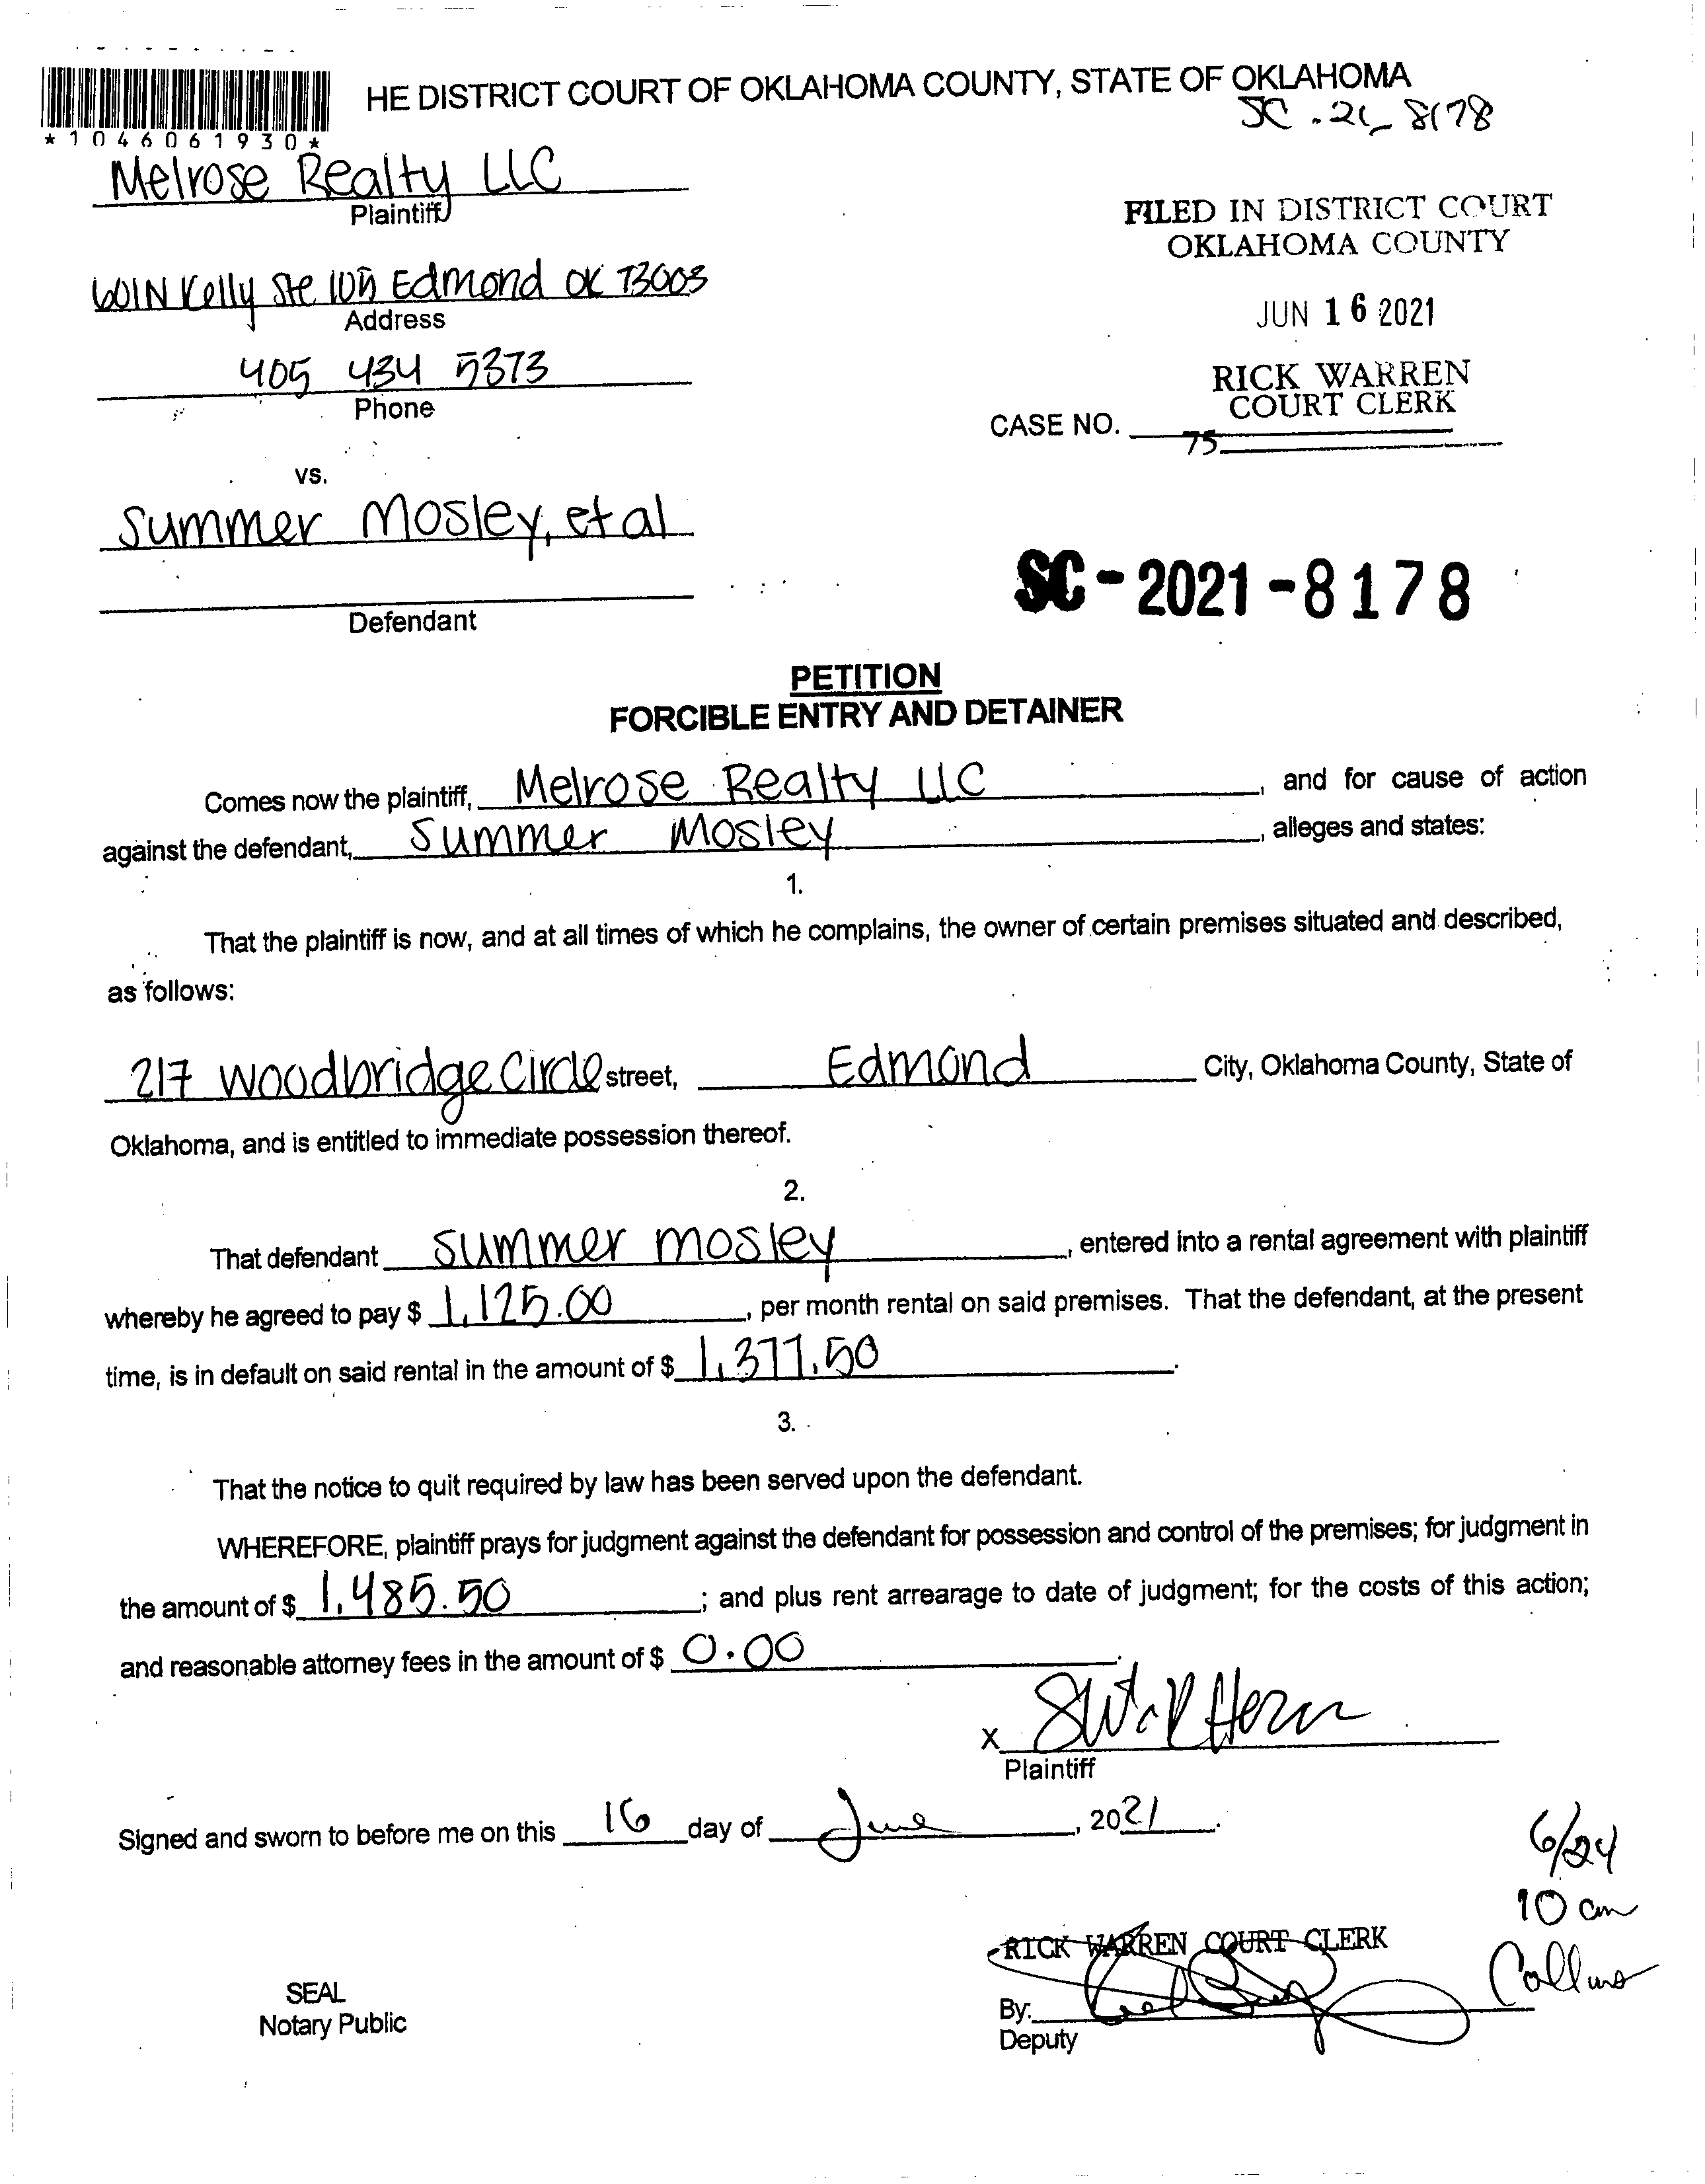 HE DISTRICT COURT OF OKLAHOMA COUNTY, STATE OF OKLAHOMA
*1046061930*
SC-21-8178
Melrose Realty LLC
Plaintiff
FILED IN DISTRICT COURT
OKLAHOMA COUNTY
601N Kelly Ste 105 Edmond OK 73003
Address
JUN 16 2021
405 434 5373
Phone
RICK WARREN
COURT CLERK
CASE NO.
75
vs.
Summer Mosley, et al
Defendant
SC-2021-8178
PETITION
FORCIBLE ENTRY AND DETAINER
Comes now the plaintiff, Melrose Realty LLC, and for cause of action
against the defendant, Summer Mosley, alleges and states:
1.
That the plaintiff is now, and at all times of which he complains, the owner of certain premises situated and described,
as follows:
217 Woodbridge Circle street, Edmond City, Oklahoma County, State of
Oklahoma, and is entitled to immediate possession thereof.
2.
That defendant Summer Mosley, entered into a rental agreement with plaintiff
whereby he agreed to pay $ 1,125.00, per month rental on said premises. That the defendant, at the present
time, is in default on said rental in the amount of $ 1,377.50.
3.
That the notice to quit required by law has been served upon the defendant.
WHEREFORE, plaintiff prays for judgment against the defendant for possession and control of the premises; for judgment in
the amount of $ 1,485.50; and plus rent arrearage to date of judgment; for the costs of this action;
and reasonable attorney fees in the amount of $ 0.00.
X
Plaintiff
Signed and sworn to before me on this 16 day of June, 2021.
6/24
10 am
Collins
RICK WARREN COURT CLERK
SEAL
Notary Public
By:
Deputy